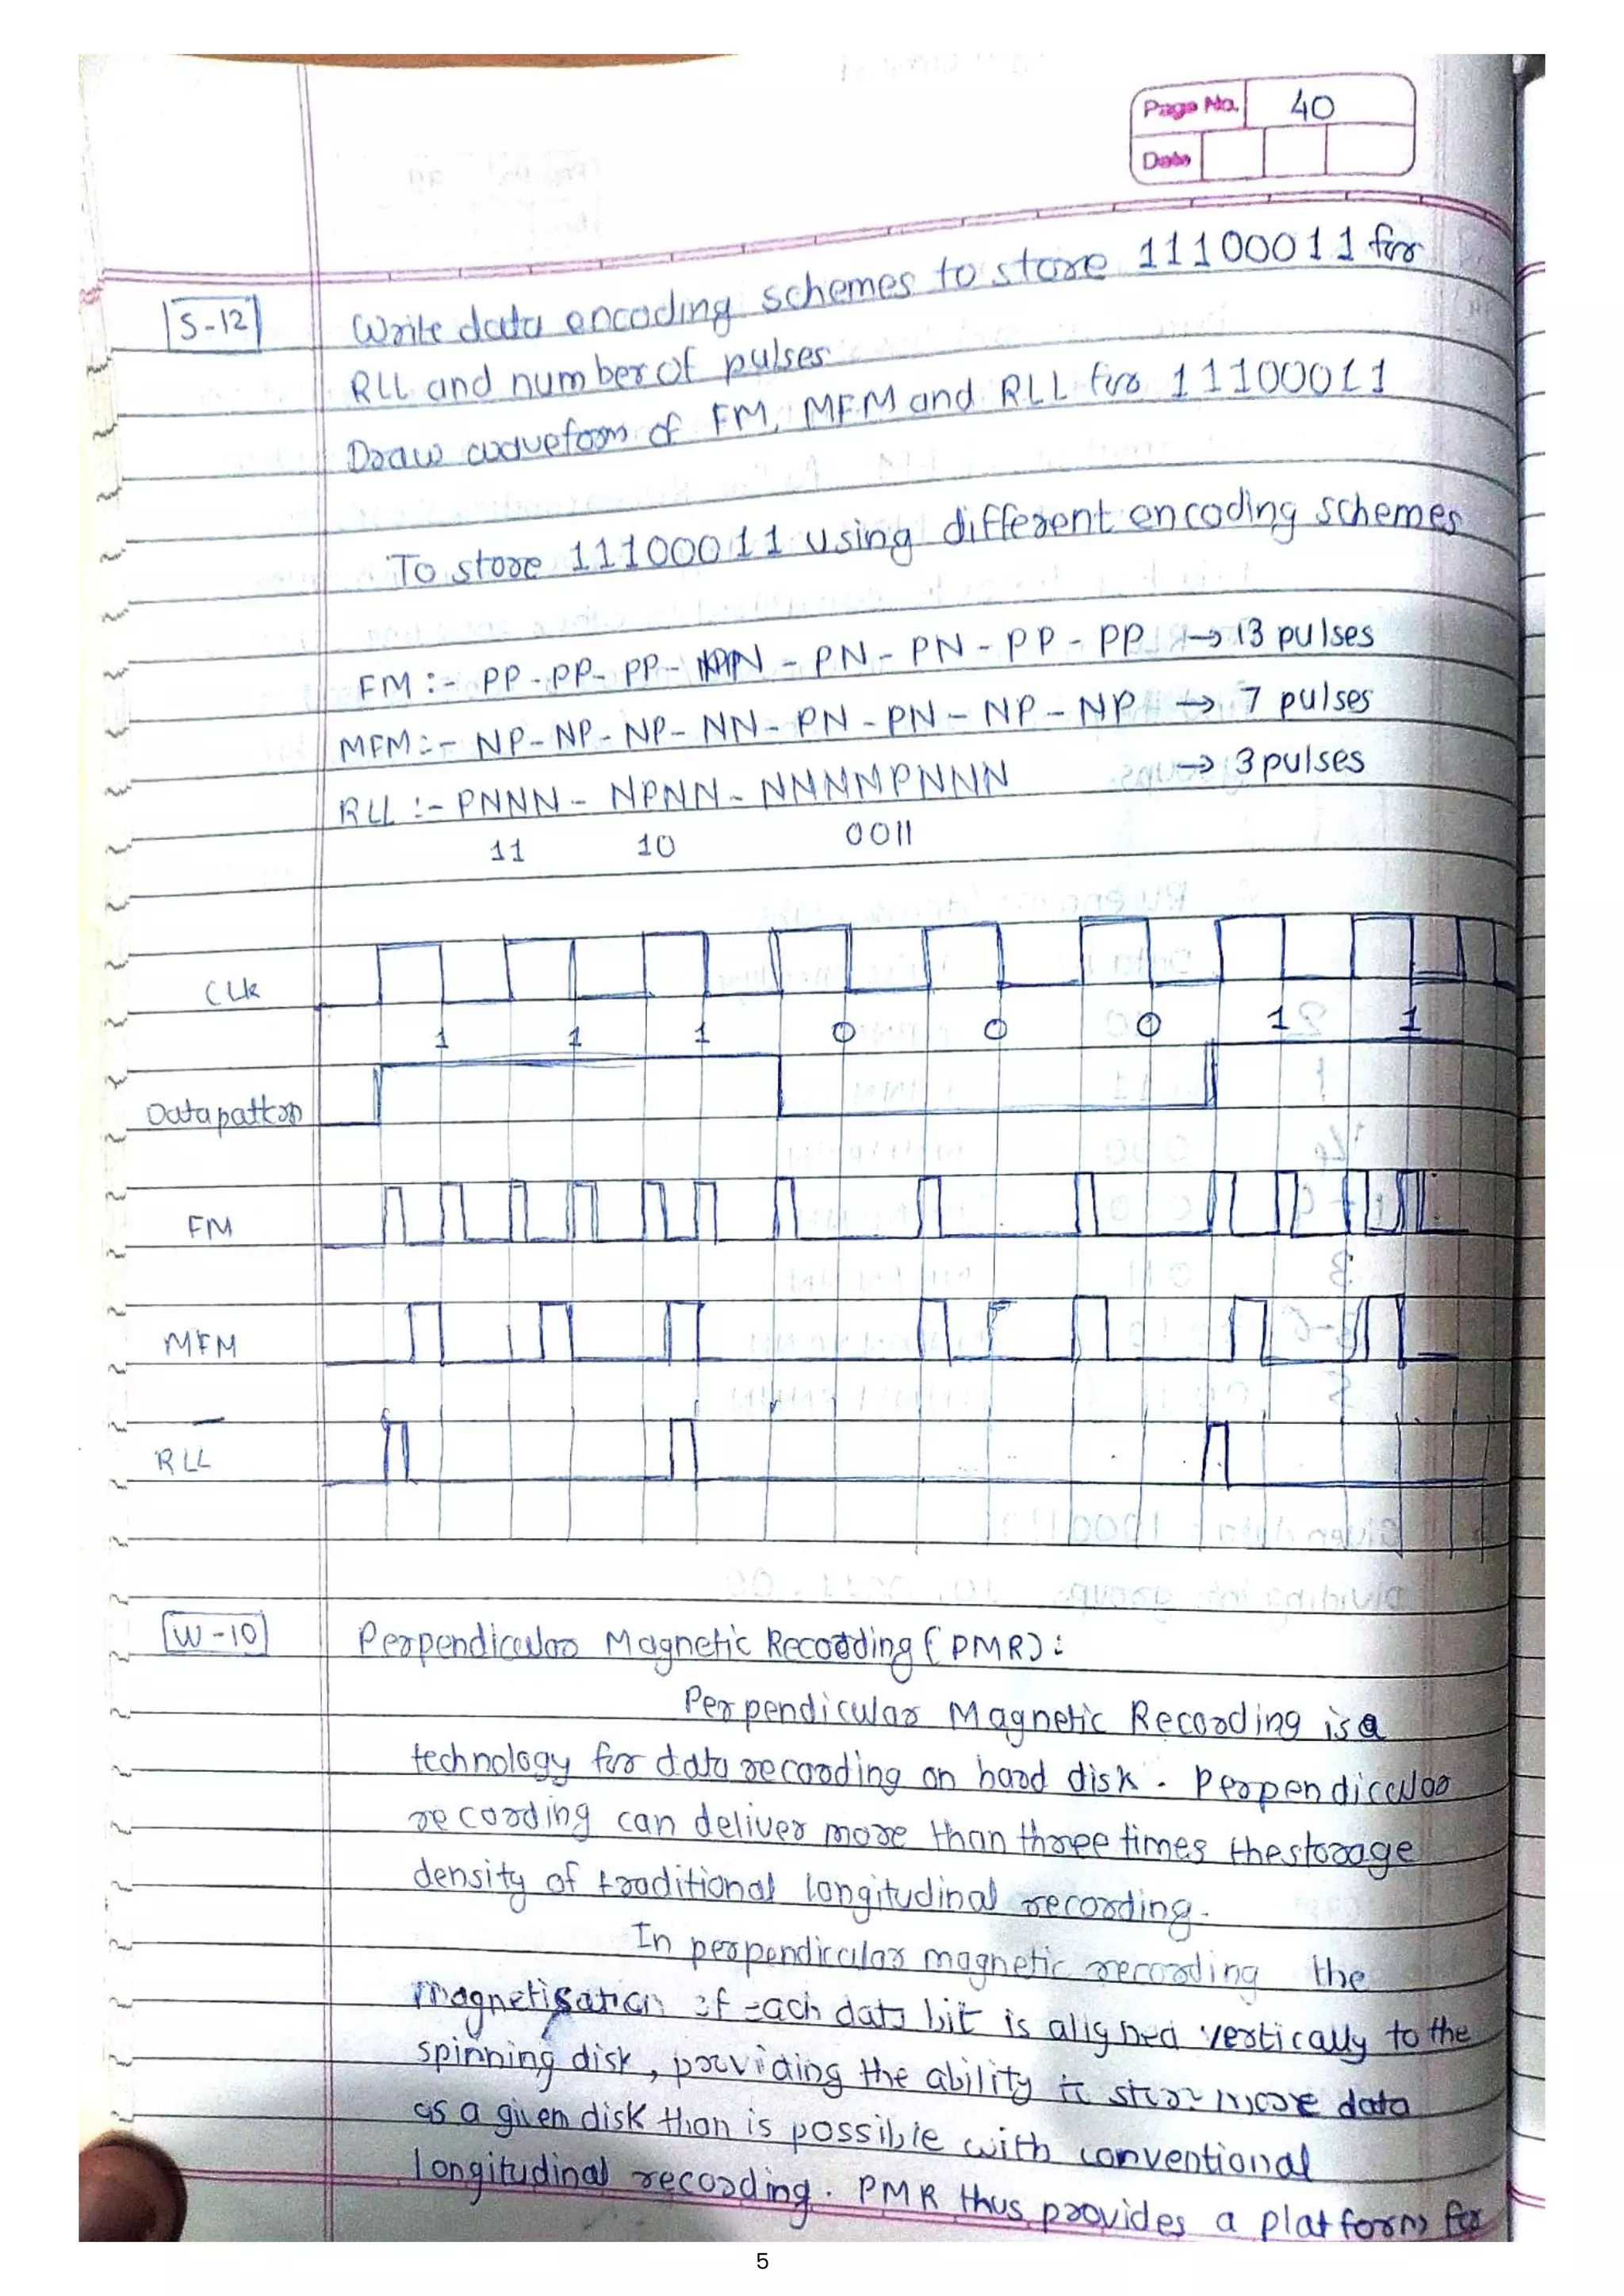 Page No. 40
Date
S-12
Write data encoding schemes to store 11100011 for
RLL and number of pulses
Draw waveform of FM, MFM and RLL for 11100011
To store 11100011 using different encoding schemes
FM :- PP - PP - PP - PN - PN - PN - PP - PP → 13 pulses
MFM :- NP - NP - NP - NN - PN - PN - NP - NP → 7 pulses
RLL :- PNNN - NPNN - NNNNPNNN → 3 pulses
11 10 0011
CLk
1 1 1 0 0 0 1 1
Data pattern
FM
MFM
RLL
W-10
Perpendicular Magnetic Recording (PMR) :
Perpendicular Magnetic Recording is a
technology for data recording on hard disk. Perpendicular
recording can deliver more than three times the storage
density of traditional longitudinal recording.
In perpendicular magnetic recording the
magnetisation of each data bit is aligned vertically to the
spinning disk, providing the ability to store more data
as a given disk than is possible with conventional
longitudinal recording. PMR thus provides a platform for
5